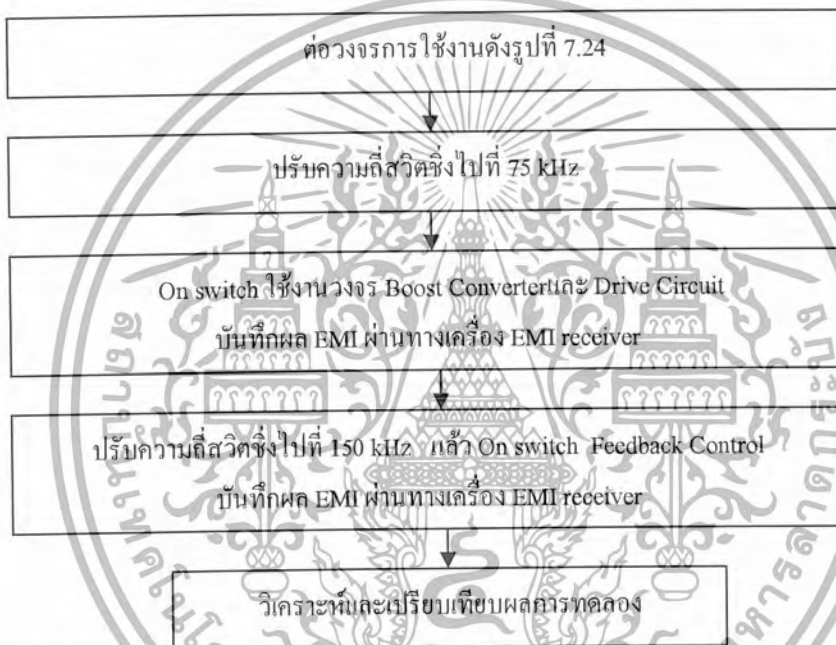 ต่อวงจรการใช้งานดังรูปที่ 7.24
ปรับความถี่สวิตชิ่งไปที่ 75 kHz
On switch ใช้งานวงจร Boost Converterและ Drive Circuit
บันทึกผล EMI ผ่านทางเครื่อง EMI receiver
ปรับความถี่สวิตชิ่งไปที่ 150 kHz แล้ว On switch Feedback Control
บันทึกผล EMI ผ่านทางเครื่อง EMI receiver
วิเคราะห์และเปรียบเทียบผลการทดลอง